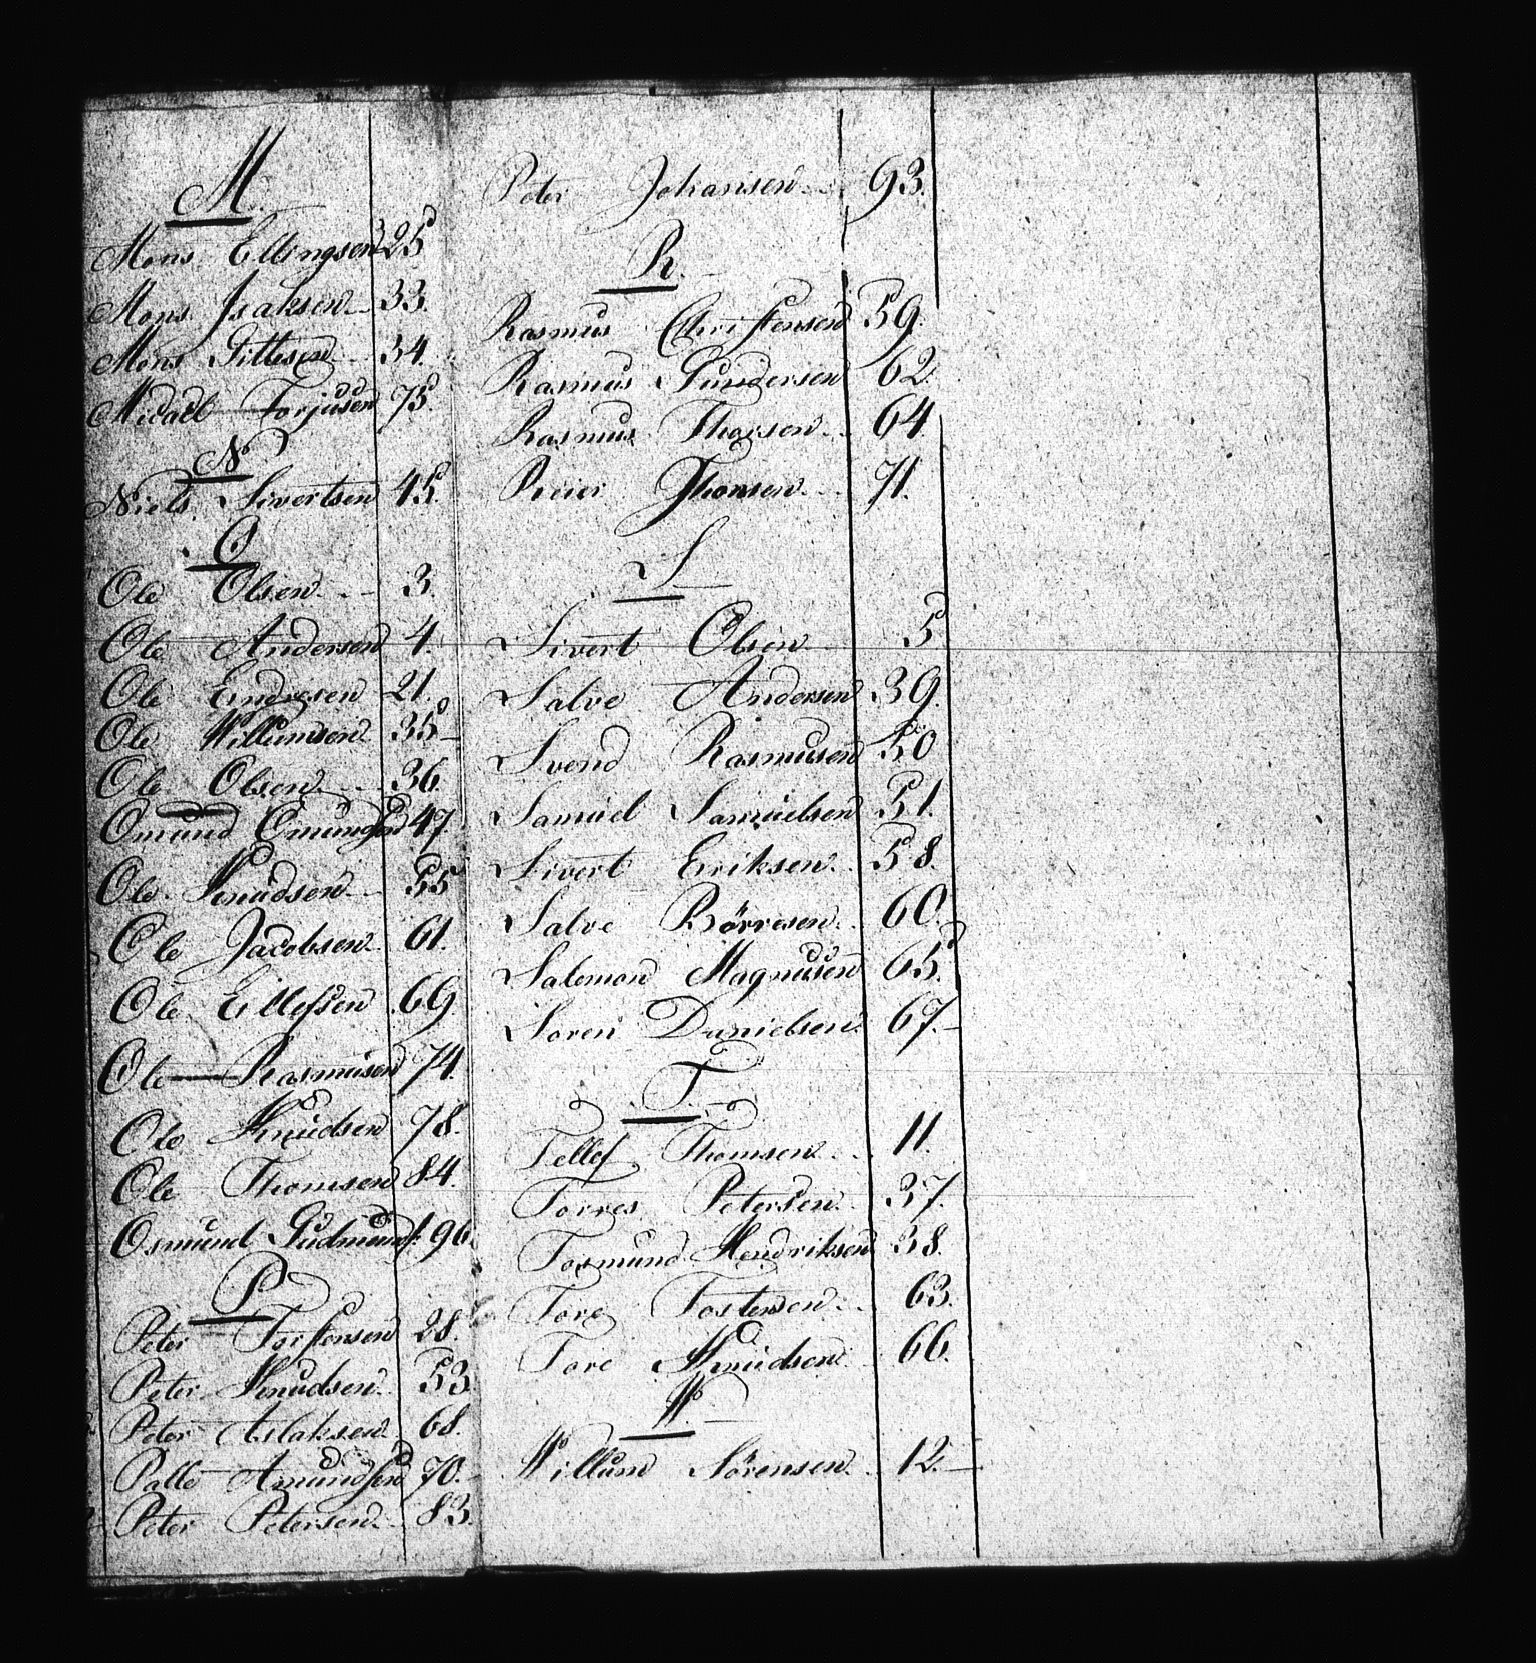 M.
Mons Ellingsen 25
Mons Isaksen 33.
Mons Gittesen 34.
Micael Torjusen 75
N
Niels Sivertsen 45.
O
Ole Olsen 3.
Ole Andersen 4.
Ole Endresen 21.
Ole Willumsen 35
Ole Olsen 36.
Omund Emunds 47.
Ole Knudsen 55
Ole Jacobsen 61.
Ole Ellefsen 69
Ole Rasmusen 74.
Ole Knudsen 78.
Ole Thomsen 84.
Osmund Gudmunds: 96
P
Peter Torstensen 28.
Peter Knudsen 53.
Peter Aslaksen 68.
Palle Amundsen 70.
Peter Petersen 83.
Peter Johansen 93.
R.
Rasmus Christensen 59.
Rasmus Gundersen 62.
Rasmus Thorsen 64.
Reier Thomsen 71.
S
Sivert Olsen 5
Salve Andersen 39.
Svend Rasmusen 50
Samuel Samuelsen 51.
Sivert Eriksen 58.
Salve Börresen 60.
Salomon Magnusen 65.
Soren Danielsen 67.
T.
Tellef Thomsen 11.
Torres Petersen 37.
Tormund Hendriksen 38.
Tore Tostensen 63.
Tore Knudsen 66.
W.
Willum Sörensen 12.